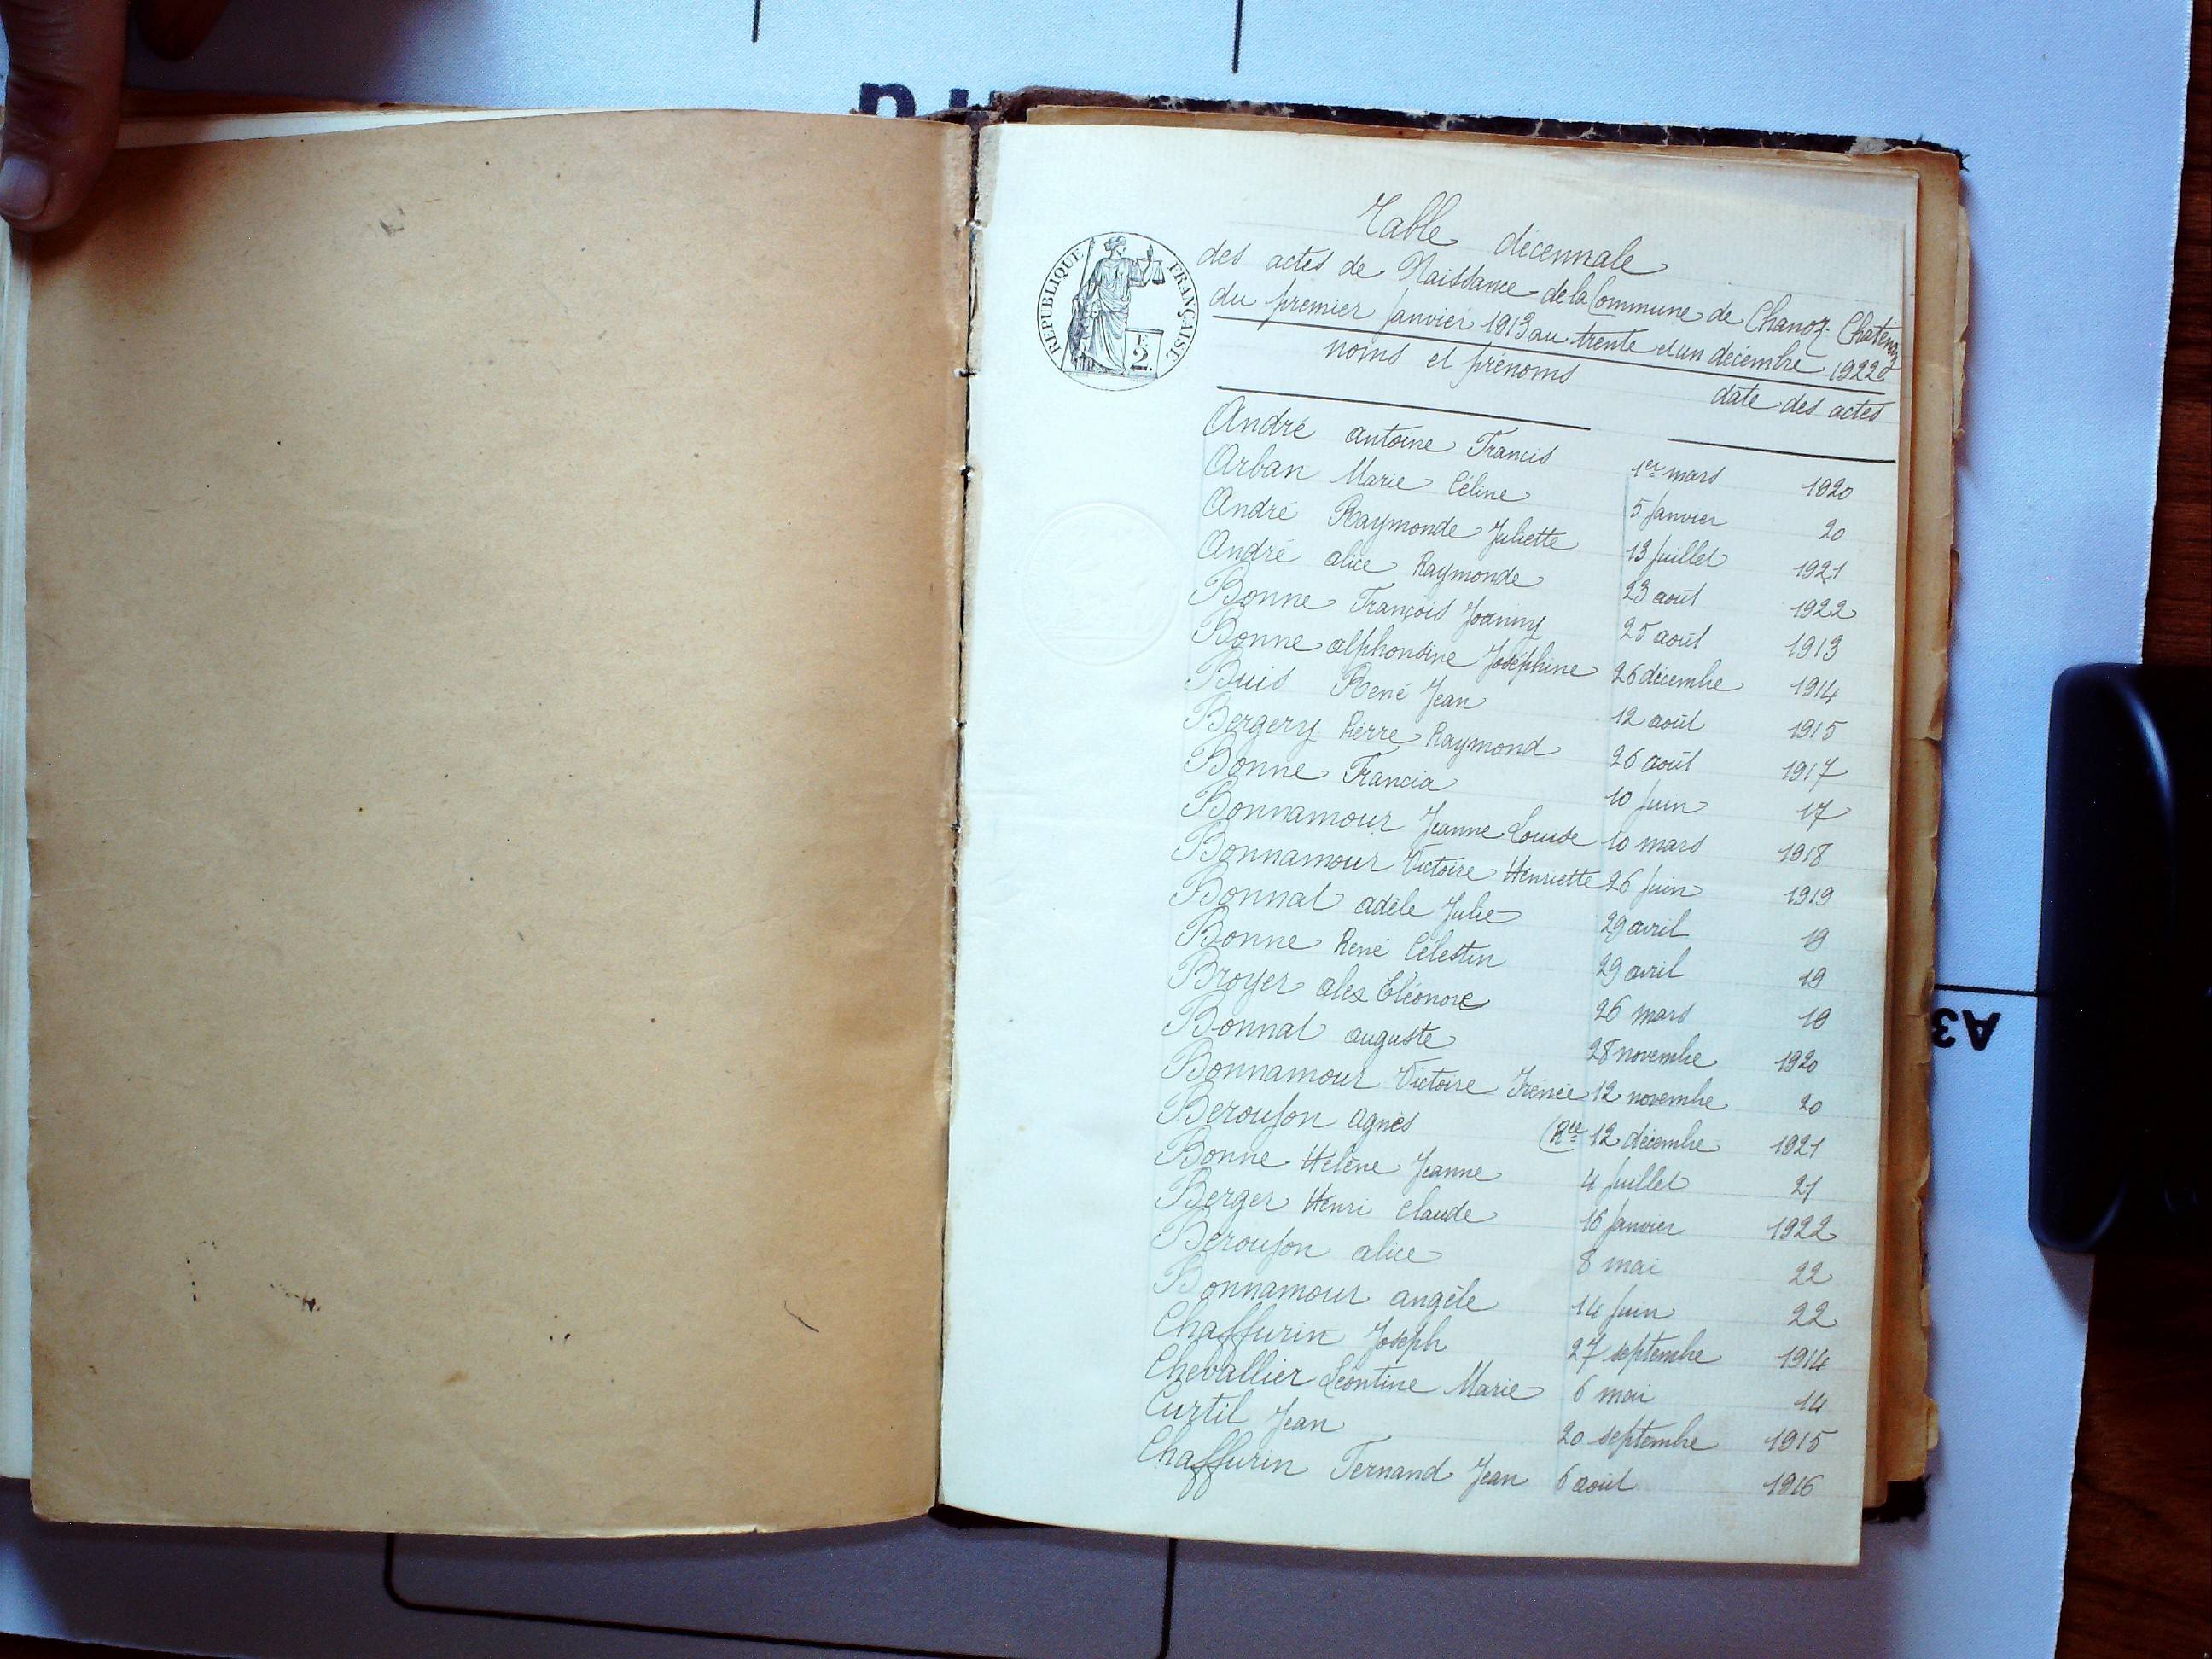 RÉPUBLIQUE FRANÇAISE
2F.
Table décennale
des actes de Naissance de la Commune de Chanoz-Chatenay
du premier Janvier 1913 au trente et un décembre 1922
noms et prénoms date des actes
André antoine Francis 1er mars 1920
Arban Marie Céline 5 Janvier 20
André Raymonde Juliette 13 Juillet 1921
André alice Raymonde 23 août 1922
Bonne François Joanny 25 août 1913
Bonne alphonsine Joséphine 26 décembre 1914
Buis René Jean 12 août 1915
Bergery Pierre Raymond 26 août 1917
Bonne Francia 10 Juin 17
Bonnamour Jeanne Louise 10 mars 1918
Bonnamour Victoire Henriette 26 Juin 1919
Bonnat adèle Julie 29 avril 19
Bonne René Célestin 29 avril 19
Broyer alex Eléonore 26 mars 19
Bonnat auguste 28 novembre 1920
Bonnamour Victoire Irénée 12 novembre 20
Beroujon agnès (Rce 12 décembre 1921
Bonne Hélène Jeanne 4 Juillet 21
Berger Henri Claude 16 Janvier 1922
Beroujon alice 8 mai 22
Bonnamour angèle 14 Juin 22
Chaffurin Joseph 27 septembre 1914
Chevallier Léontine Marie 6 mai 14
Curtil Jean 20 septembre 1915
Chaffurin Fernand Jean 6 août 1916
A3